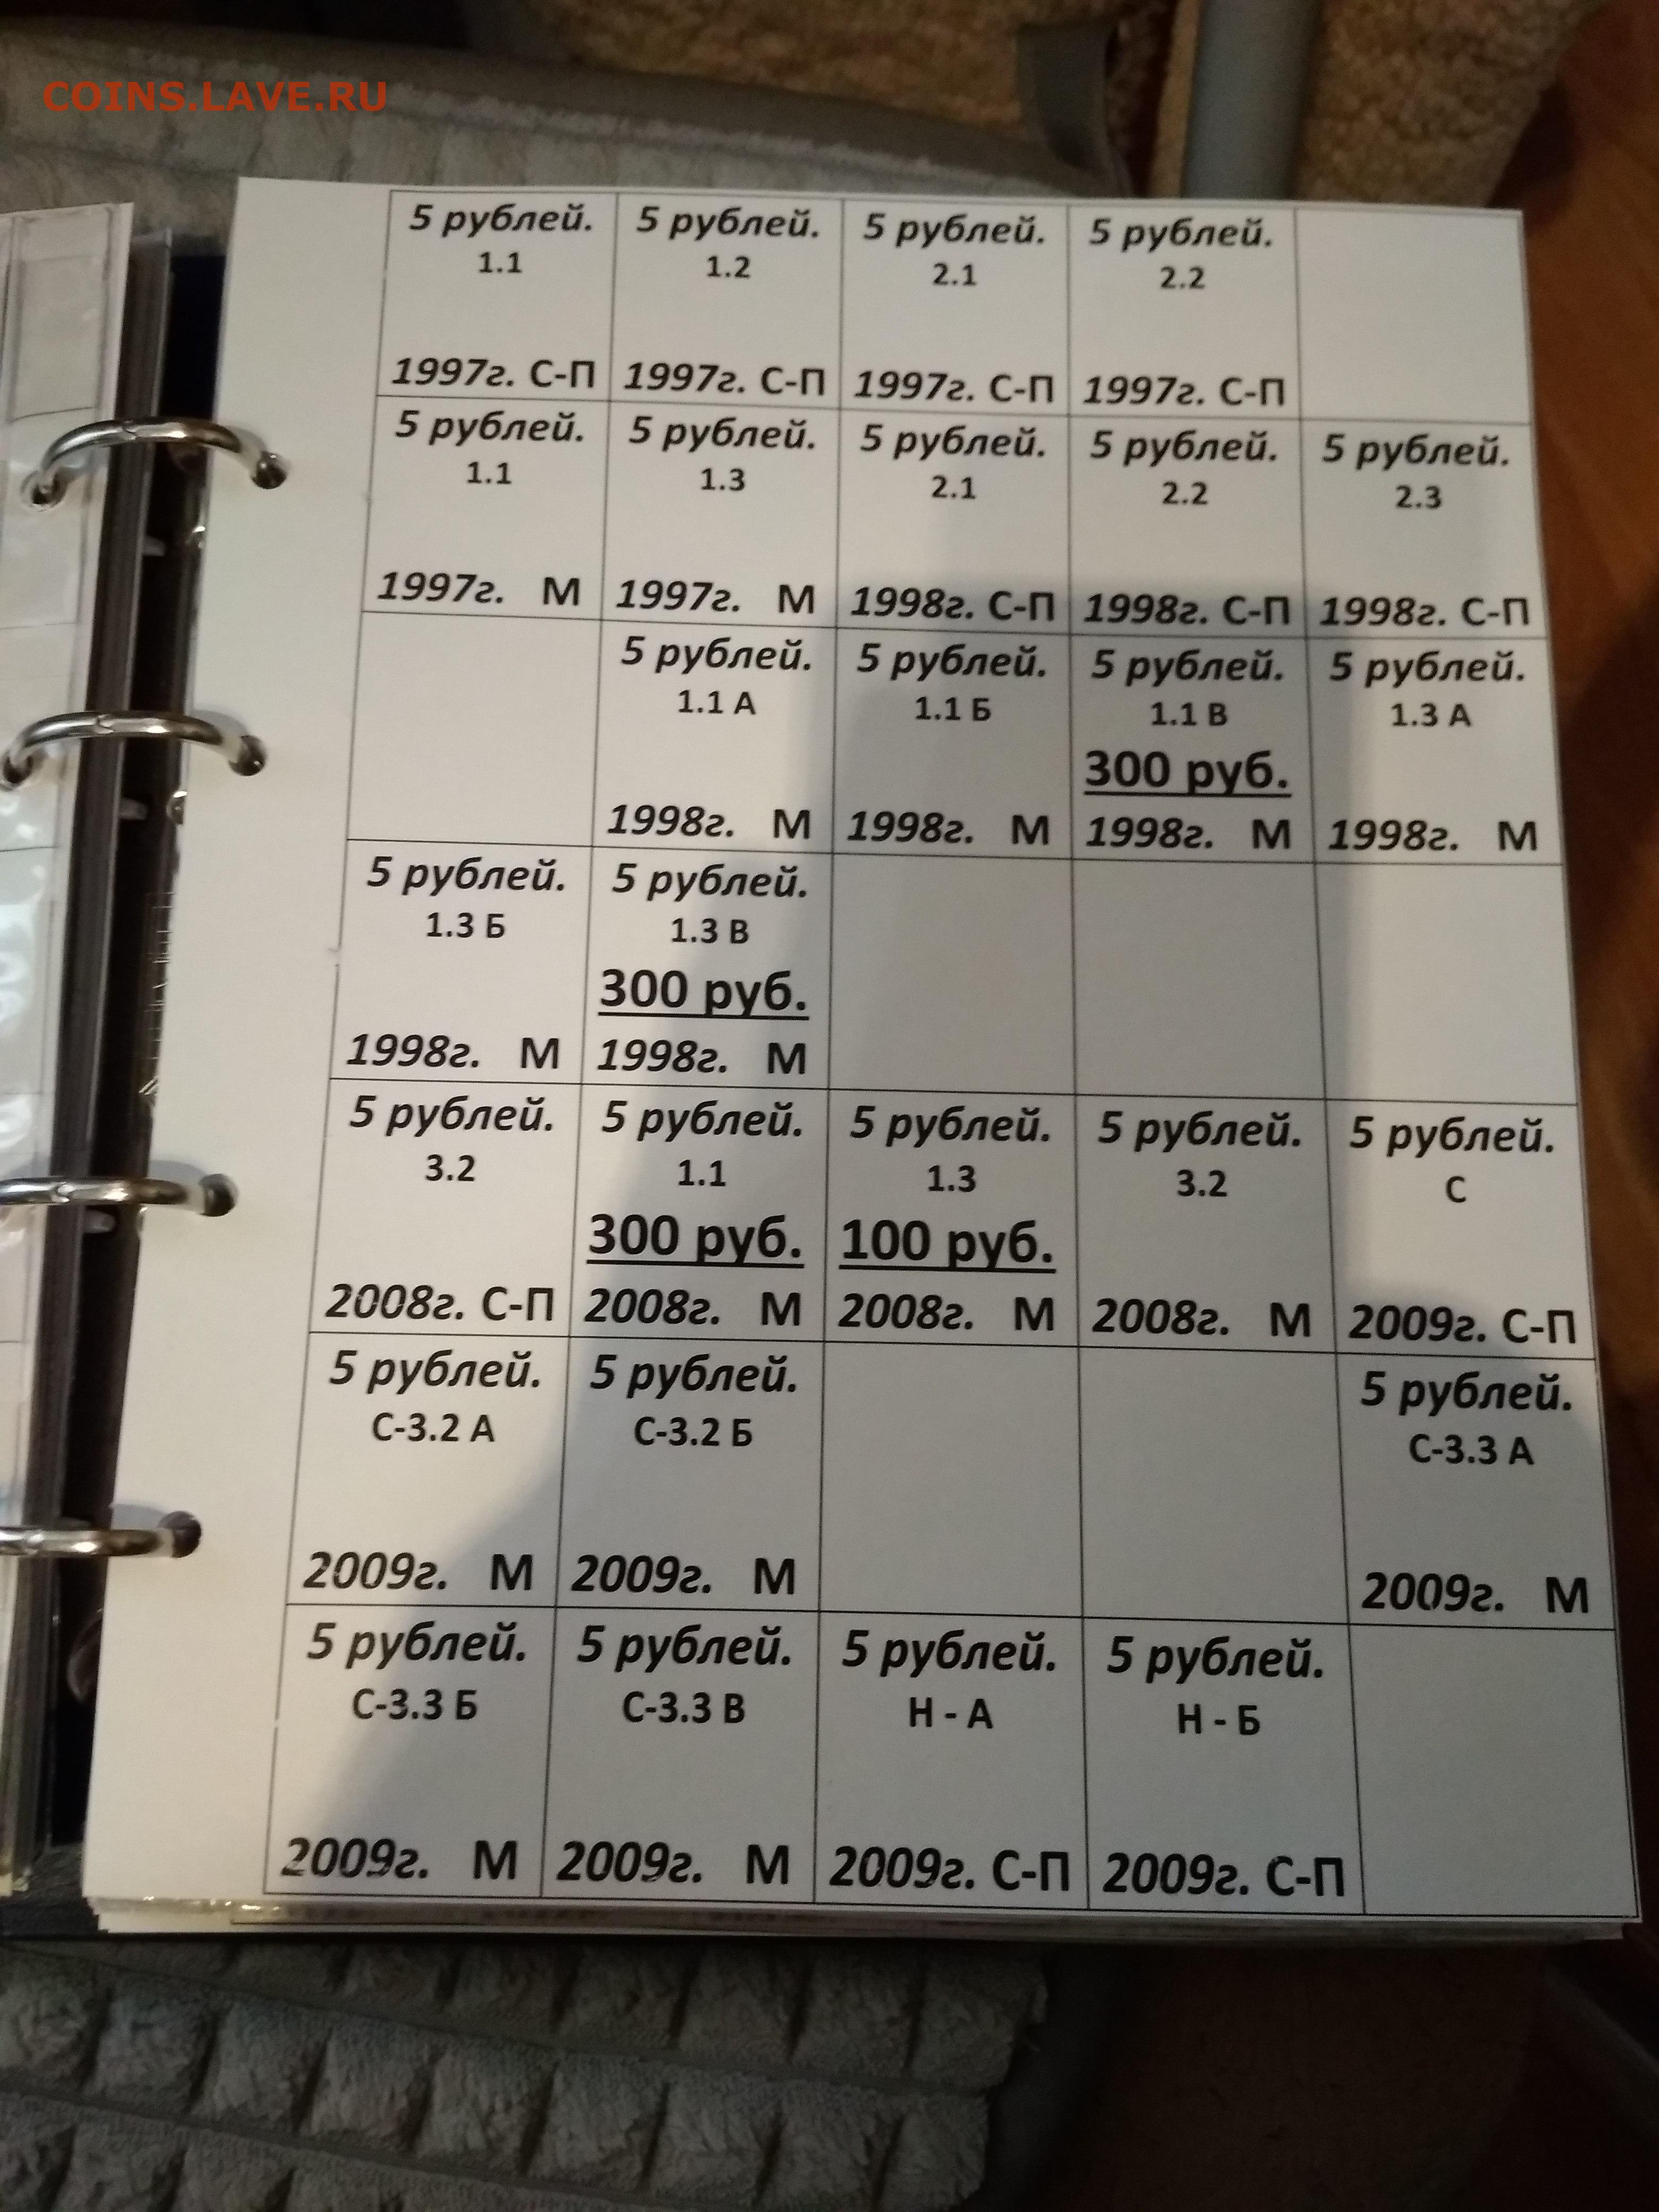 COINS.LAVE.RU
5 рублей. 5 рублей. 5 рублей. 5 рублей.
1.1 1.2 2.1 2.2
1997г. С-П 1997г. С-П 1997г. С-П 1997г. С-П
5 рублей. 5 рублей. 5 рублей. 5 рублей. 5 рублей.
1.1 1.3 2.1 2.2 2.3
1997г. М 1997г. М 1998г. С-П 1998г. С-П 1998г. С-П
5 рублей. 5 рублей. 5 рублей. 5 рублей.
1.1 А 1.1 Б 1.1 В 1.3 А
300 руб.
1998г. М 1998г. М 1998г. М 1998г. М
5 рублей. 5 рублей.
1.3 Б 1.3 В
300 руб.
1998г. М 1998г. М
5 рублей. 5 рублей. 5 рублей. 5 рублей. 5 рублей.
3.2 1.1 1.3 3.2 С
300 руб. 100 руб.
2008г. С-П 2008г. М 2008г. М 2008г. М 2009г. С-П
5 рублей. 5 рублей. 5 рублей.
С-3.2 А С-3.2 Б С-3.3 А
2009г. М 2009г. М 2009г. М
5 рублей. 5 рублей. 5 рублей. 5 рублей.
С-3.3 Б С-3.3 В Н - А Н - Б
2009г. М 2009г. М 2009г. С-П 2009г. С-П